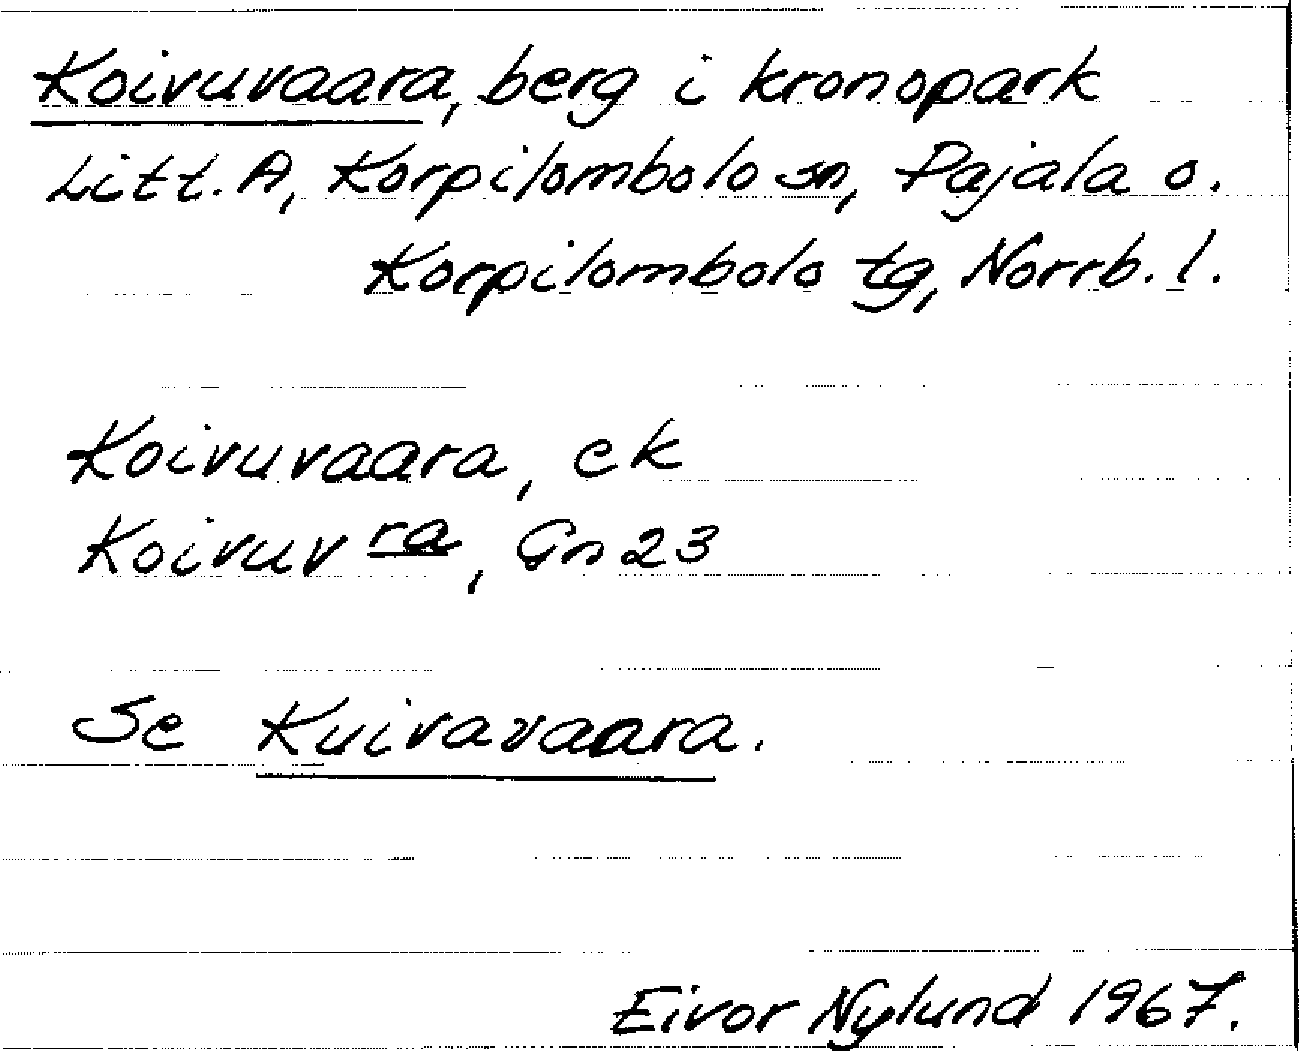 Koivuvaara, berg i kronopark
Litt. A, Korpilombolo sn, Pajala o.
Korpilombolo tg, Norrb. l.
Koivuvaara, ek
Koivuv ra, Gn 23
Se Kuivavaara.
Eivor Nylund 1967.